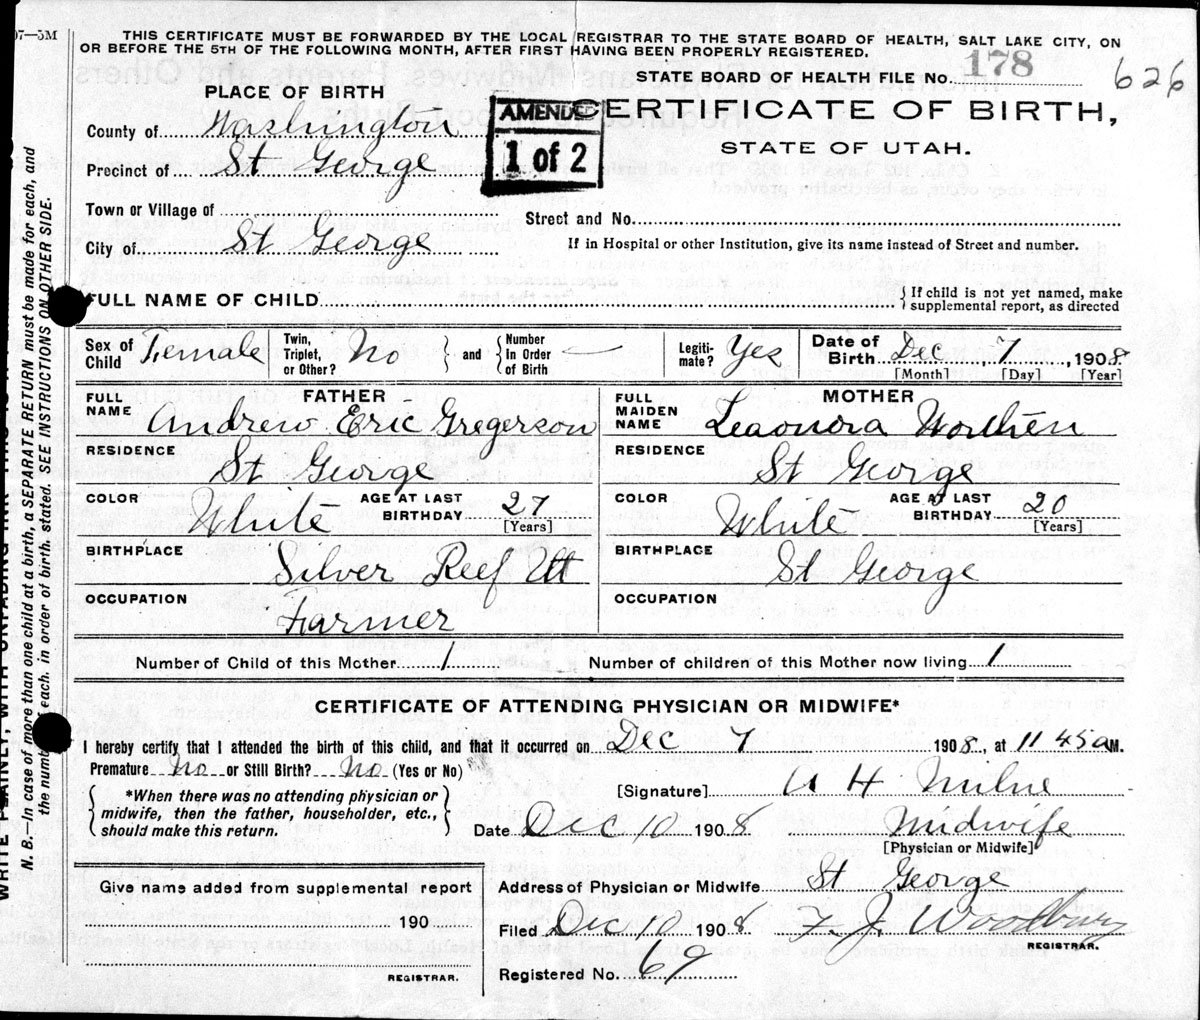 07—5M
THIS CERTIFICATE MUST BE FORWARDED BY THE LOCAL REGISTRAR TO THE STATE BOARD OF HEALTH, SALT LAKE CITY, ON
OR BEFORE THE 5TH OF THE FOLLOWING MONTH, AFTER FIRST HAVING BEEN PROPERLY REGISTERED.
STATE BOARD OF HEALTH FILE No. 178
626
PLACE OF BIRTH
AMENDED
1 of 2
CERTIFICATE OF BIRTH,
STATE OF UTAH.
County of Washington
Precinct of St George
Town or Village of
Street and No.
City of St George
If in Hospital or other Institution, give its name instead of Street and number.
FULL NAME OF CHILD
{ If child is not yet named, make
supplemental report, as directed
Sex of Child Female
Twin, Triplet, or Other? No } and { Number In Order of Birth —
Legiti-mate? Yes
Date of Birth Dec 7, 1908
[Month] [Day] [Year]
FATHER
FULL NAME Andrew Eric Gregerson
RESIDENCE St George
COLOR White AGE AT LAST BIRTHDAY 27
[Years]
BIRTHPLACE Silver Reef Ut
OCCUPATION Farmer
MOTHER
FULL MAIDEN NAME Leaonora Worthen
RESIDENCE St George
COLOR White AGE AT LAST BIRTHDAY 20
[Years]
BIRTHPLACE St George
OCCUPATION
Number of Child of this Mother 1 Number of children of this Mother now living 1
CERTIFICATE OF ATTENDING PHYSICIAN OR MIDWIFE*
I hereby certify that I attended the birth of this child, and that it occurred on Dec 7 1908, at 11 45 a M.
Premature No or Still Birth? No (Yes or No)
[Signature] H Milne
{ *When there was no attending physician or
midwife, then the father, householder, etc.,
should make this return. }
Date Dec 10 1908 Midwife
[Physician or Midwife]
Give name added from supplemental report
190
REGISTRAR.
Address of Physician or Midwife St George
Filed Dec 10 1908 F. J. Woodbury
REGISTRAR.
Registered No. 69
N. B.—In case of more than one child at a birth, a SEPARATE RETURN must be made for each, and
the number of each, in order of birth, stated. SEE INSTRUCTIONS ON OTHER SIDE.
WRITE PLAINLY, WITH UNFADING INK—THIS IS A